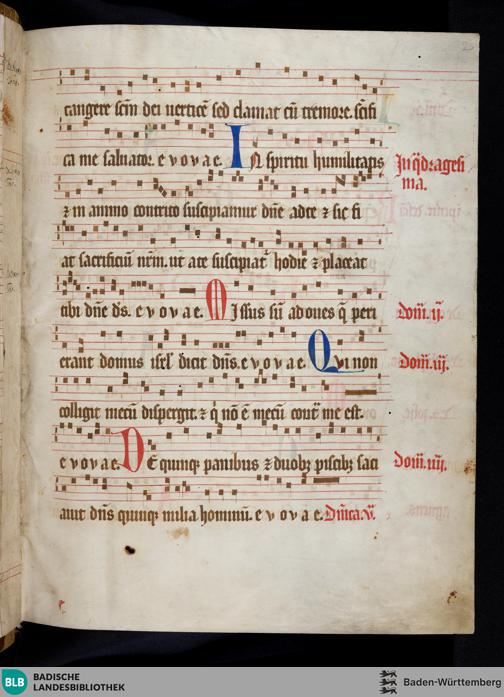 tangere scm̄ dei uerticē sed clamat cū tremore. scīfi
ca me saluator. e v o v a e. IN spiritu humilitatis
In q̄dragesi
ma.
⁊ in animo contrito suscipiamur dn̄e a te ⁊ sic fi
at sacrificiū nr̄m. ut a te suscipiat᷑ hodie ⁊ placeat
tibi dn̄e ds̄. e v o v a e. Missus sū ad oues q̄ peri
Dom̄. ij.
erant domus isrl̄ dicit dn̄s. e v o v a e. Qui non
Dom̄. iij.
colligit mecū dispergit. ⁊ q̄ nō ē mecū cont᷑ me est.
e v o v a e. DE quinqȝ panibus ⁊ duobȝ piscibȝ saci
Dom̄. iiij.
auit dn̄s quinqȝ milia hominū. e v o v a e. Dn̄ica. v.
BLB BADISCHE
LANDESBIBLIOTHEK
Baden-Württemberg